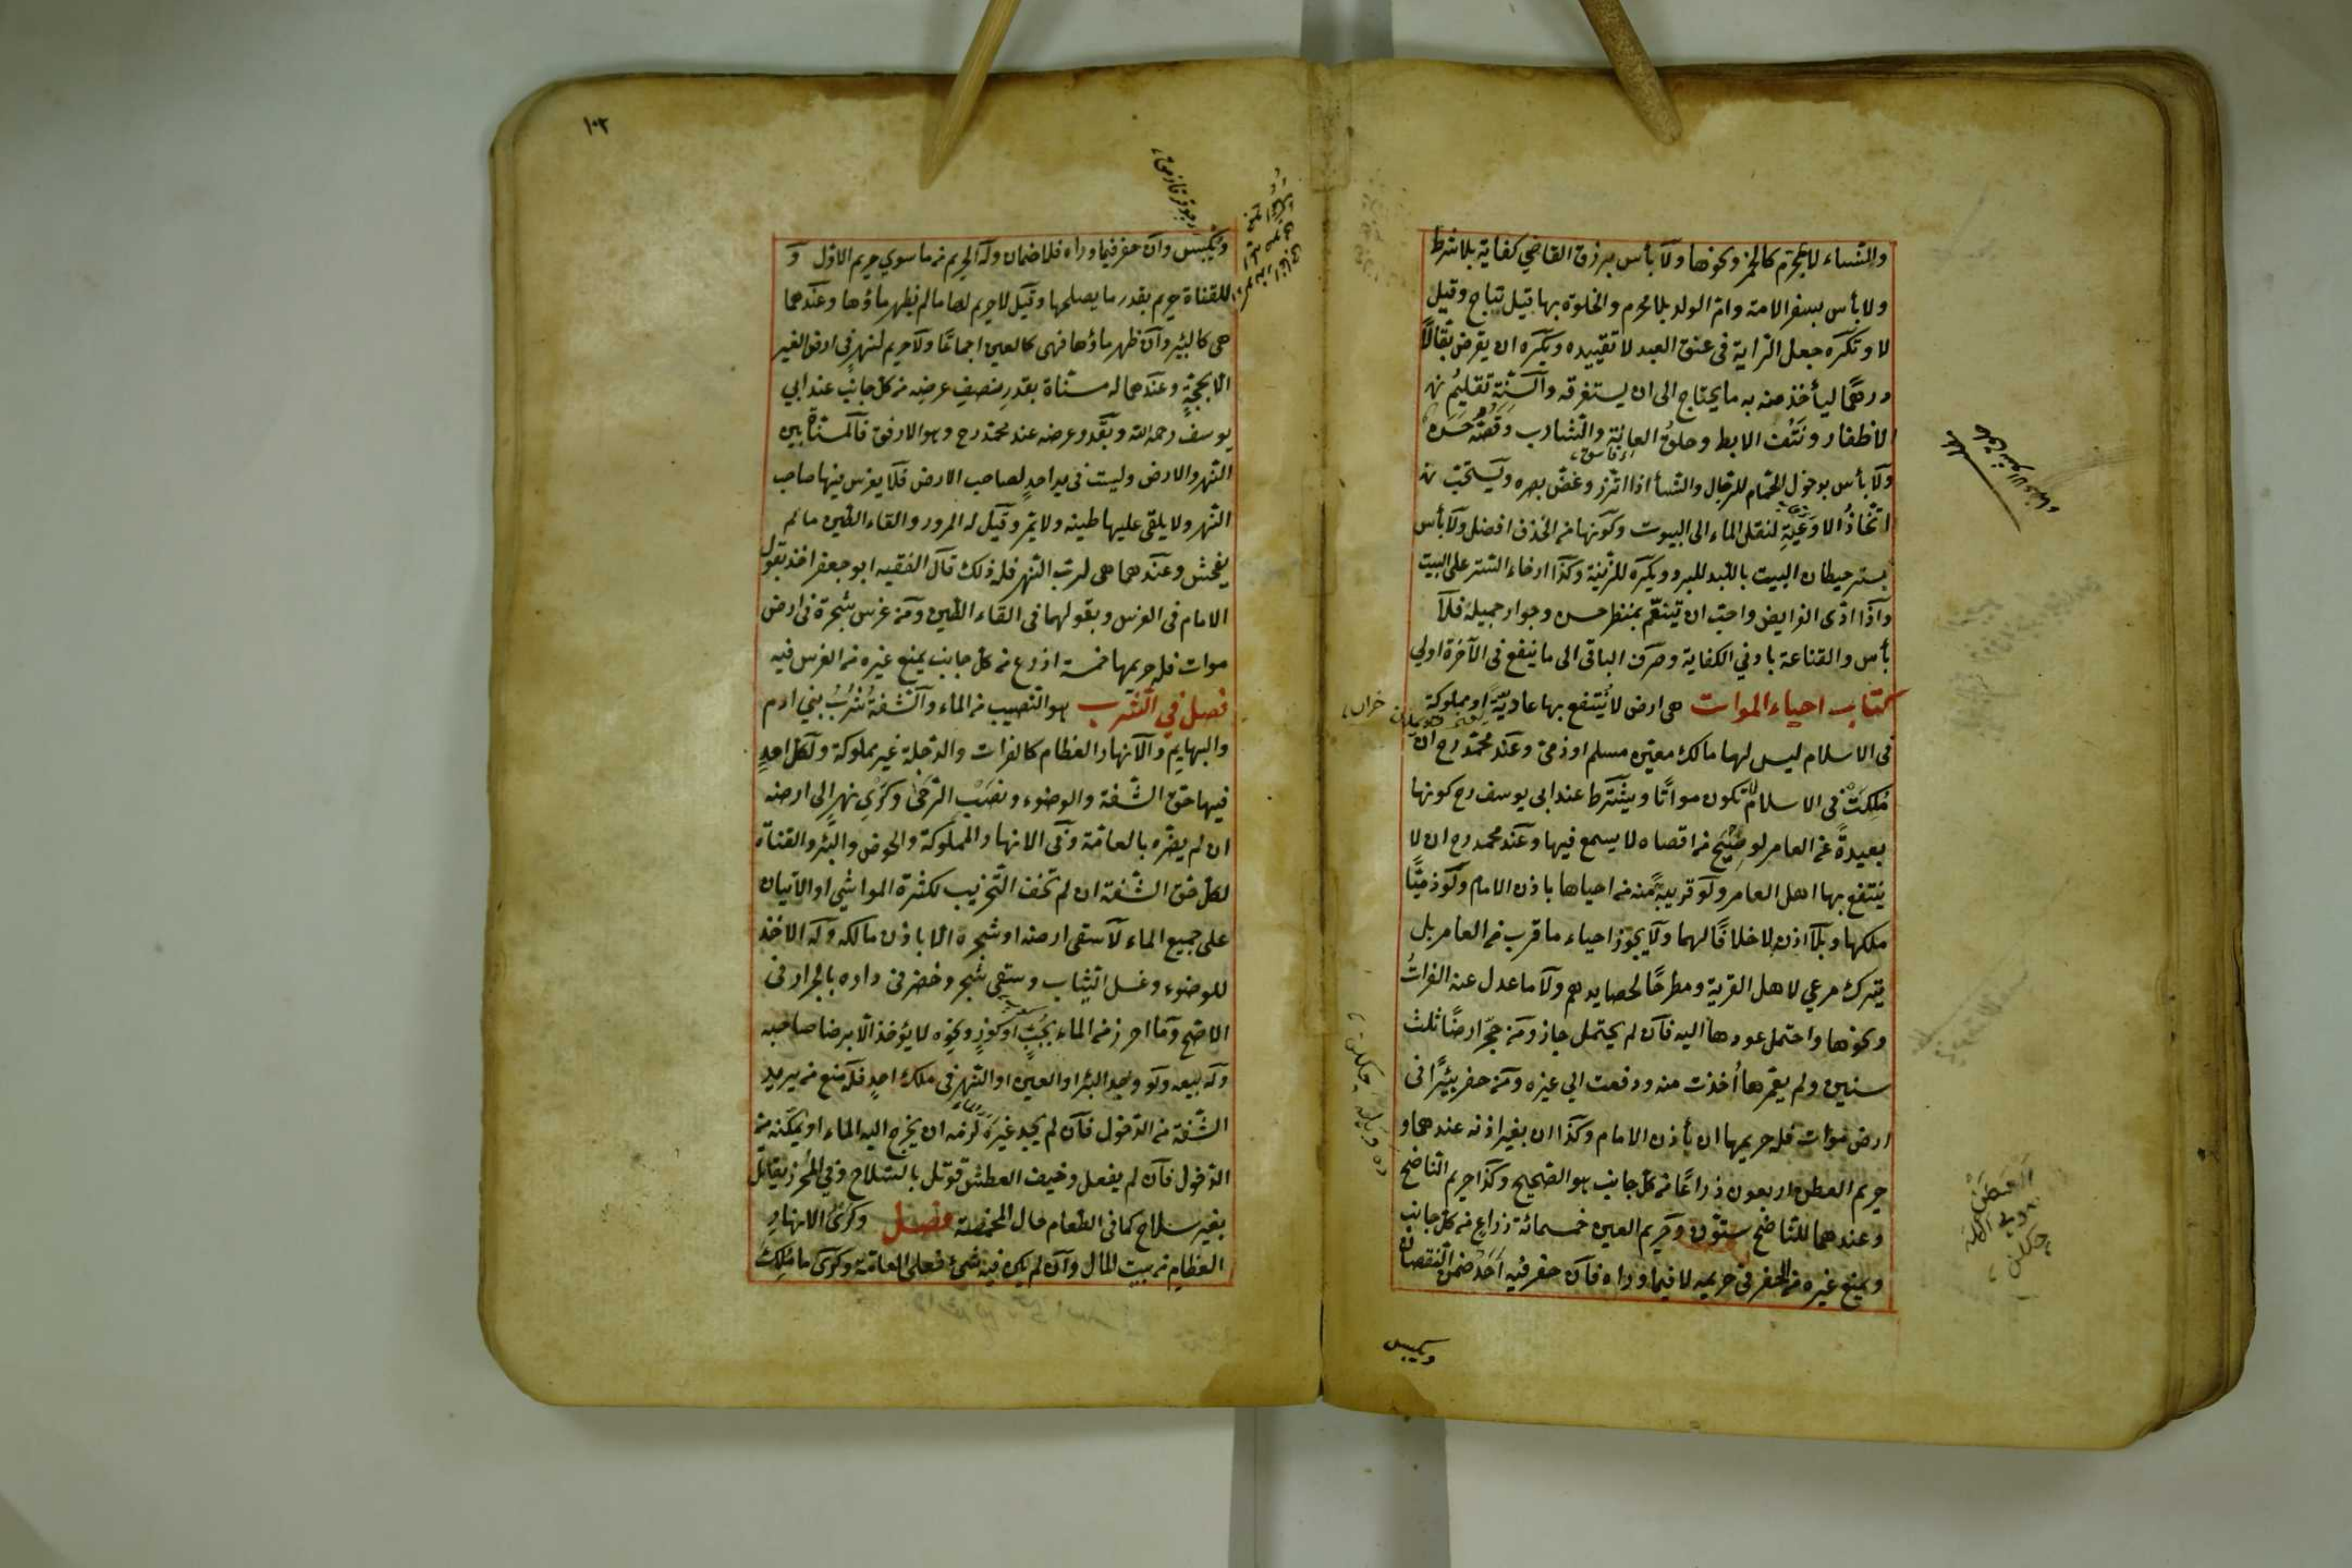 والنساء لا يحرم كالخز ونحوها ولا بأس برزق القاضي كفاية بلا شرط
ولا بأس بسفر الامة وام الولد بلا محرم والخلوة بها قيل تباح وقيل
لا وتكره جعل الراية فى عنق العبد لا تقييده ويكره ان يقرض بقالاً
درهمًا ليأخذ منه به ما يحتاج الى ان يستغرقه والسنة تقليم
الاظفار ونتف الابط وحلق العانة والشارب وقصه حسن
ولا بأس بدخول الحمام للرجال والنسأ اذا اتزر وغض بصره ويستحب
اتخاذ الاوعية لنقل الماء الى البيوت وكونها من الخذف افضل ولا بأس
بستر حيطان البيت باللبد للبرد ويكره للزينة وكذا ارخاء الستر على البيت
واذا ادى الفرايض واحب ان يتنعم بمنظر حسن وجوار جميلة فلا
بأس والقناعة بادني الكفاية وصرف الباقى الى ما ينفع فى الآخرة اولي
كتاب احياء الموات هى ارض لا ينتفع بها عادية او مملوكة
فى الاسلام ليس لها مالك معين مسلم او ذمى وعند محمد رح ان
ملكت فى الاسلام لا تكون مواتًا ويشترط عند ابى يوسف رح كونها
بعيدةً عن العامر لو صيح من اقصاه لا يسمع فيها وعند محمد رح ان لا
ينتفع بها اهل العامر ولو قريبة منه من احياها باذن الامام ولو ذميًّا
ملكها وبلا اذن لا خلافًا لهما ولا يجوز احياء ما قرب من العامر بل
يترك مرعي لاهل القرية ومطرحًا لحصايدهم ولا ما عدل عنه الفرات
ونحوها واحتمل عودها اليه فان لم يحتمل جاز ومن حجر ارضًا ثلث
سنين ولم يعمرها اخذت منه ودفعت الي غيره ومن حفر بيئرًا فى
ارض موات فله حريمها ان بأذن الامام وكذا ان بغير اذنه عندهما و
حريم العطن اربعون ذراعًا من كل جانب هو الصحيح وكذا حريم الناضح
وعندهما للناضح ستون وحريم العين خمسمائة ذراع من كل جانب
ويمنع غيره من الحفر فى حريمه لا فيما وراه فان حفر فيه احد ضمن النقصان
ويكبس
١٠٢
ويكبس وان حفر فيما وراه فلا ضمان وله الحريم من ما سوي حريم الاول و
للقناة حريم بقدر ما يصلحها وقيل لا حريم لها ما لم يظهر ماؤها وعندهما
هى كالبئر وان ظهر ماؤها فهى كالعين اجماعًا ولا حريم لنهر فى ارض الغير
الا بحجة وعندهما له مسناة بقدر نصف عرضه من كل جانب عند ابي
يوسف رحمه الله وبقدر عرضه عند محمد رح وهو الارفق فالمسناة بين
النهر والارض وليست فى يد احد لصاحب الارض فلا يغرس فيها صاحب
النهر ولا يلقى عليها طينه ولا يمر وقيل له المرور والقاء الطين ما لم
يفحش وعندهما هى لرب النهر فله ذلك قال الفقيه ابو جعفر اخذ بقول
الامام فى الغرس وبقولهما فى القاء الطين ومن غرس شجرة فى ارض
موات فله حريمها خمسة اذرع من كل جانب يمنع غيره من الغرس فيه
فصل في الشرب هو النصيب من الماء والشفة شرب بني ادم
والبهايم والانهار العظام كالفرات والدجلة غير مملوكة ولكل احد
فيها حق الشفة والوضوء ونصب الرحى وكري نهر الى ارضه
ان لم يضره بالعامة وفى الانهار المملوكة والحوض والبئر والقناة
لكل حق الشفة ان لم تخف التخريب لكثرة المواشي او الاتيان
على جميع الماء لا سقى ارضه او شجره الا باذن مالكه وله الاخذ
للوضوء وغسل الثياب وسقى شجر وخضر فى داره بالجرار فى
الاصح وما احرز من الماء بجب او كوز ونحوه لا يؤخذ الا برضا صاحبه
وله بيعه ولو وجد البئر او العين او النهر فى ملك احد فله منع من يريد
الشفة من الدخول فان لم يجد غيره لزمه ان يخرج اليه الماء او يمكنه من
الدخول فان لم يفعل وخيف العطش قوتل بالسلاح وفي المحرز يقاتل
بغير سلاح كما فى الطعام حال المخمصة فصل وكرى الانهار
العظام من بيت المال وان لم يكن فيه شئ فعلى العامة وكرى ما ملك